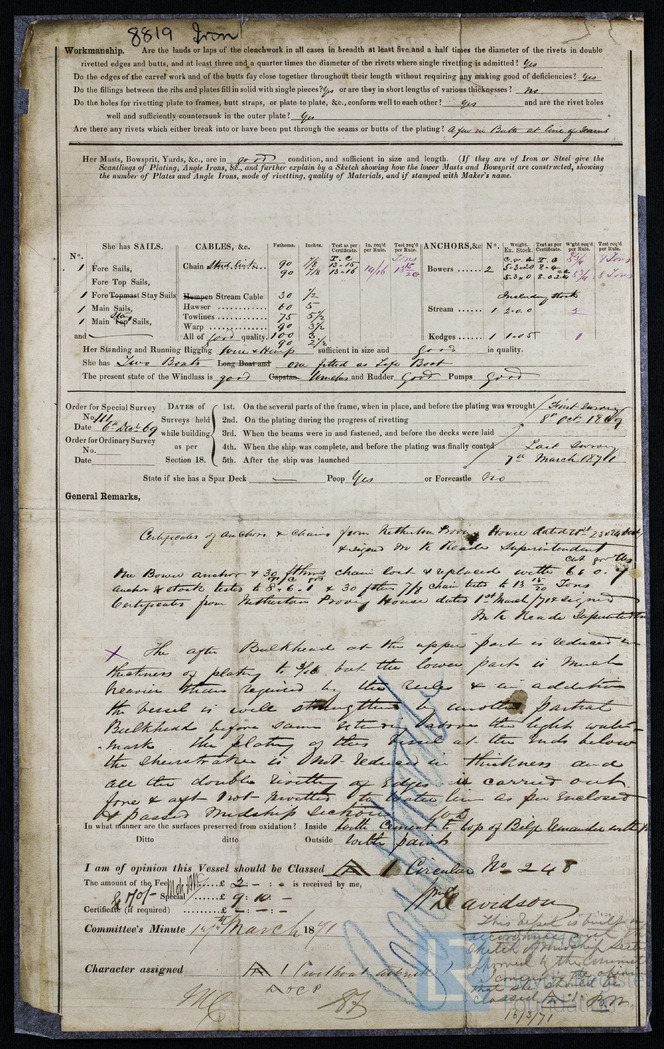 8819 Iron
Workmanship. Are the lands or laps of the clenchwork in all cases in breadth at least five and a half times the diameter of the rivets in double
rivetted edges and butts, and at least three and a quarter times the diameter of the rivets where single rivetting is admitted? Yes
Do the edges of the carvel work and of the butts fay close together throughout their length without requiring any making good of deficiencies? Yes
Do the fillings between the ribs and plates fill in solid with single pieces? Yes or are they in short lengths of various thicknesses? No
Do the holes for rivetting plate to frames, butt straps, or plate to plate, &c., conform well to each other? Yes and are the rivet holes
well and sufficiently countersunk in the outer plate? Yes
Are there any rivets which either break into or have been put through the seams or butts of the plating? A few in Butts at line of Seams
Her Masts, Bowsprit, Yards, &c., are in good condition, and sufficient in size and length. (If they are of Iron or Steel give the
Scantlings of Plating, Angle Irons, &c., and further explain by a Sketch showing how the lower Masts and Bowsprit are constructed, showing
the number of Plates and Angle Irons, mode of rivetting, quality of Materials, and if stamped with Maker's name.
She has SAILS. CABLES, &c. Fathoms. Inches. Test as per Certificate. In. req'd per Rule. Test req'd per Rule. ANCHORS, &c N°. Weight. Ex. Stock. Test as per Certificate. Wght req'd per Rule. Test req'd per Rule.
N°.
1 Fore Sails, Chain Stud link 90 7/8 13-15 14/16 Bowers 2
Fore Top Sails, 90 7/8 13-16
1 Fore Topmast Stay Sails Hempen Stream Cable 30 1/2 Including Stock
1 Main Sails, Hawser 60 5 Stream 1 2.0.0 2
1 Main Top Stay Sails, Towlines 75 5 1/2
Warp 90 3 1/2
and All of good quality. 100 3 Kedges 1 1.0.5 1
90 2 1/2
Her Standing and Running Rigging Wire & Hemp sufficient in size and good in quality.
She has Two Boats Long Boat and one fitted as Life Boat
The present state of the Windlass is good Capstan Winches and Rudder Good Pumps Good
Order for Special Survey
No. 111
Date 6th Decr 69
Order for Ordinary Survey
No.
Date
DATES of Surveys held while building as per Section 18.
1st. On the several parts of the frame, when in place, and before the plating was wrought First Survey
2nd. On the plating during the progress of rivetting 8th Oct. 1869
3rd. When the beams were in and fastened, and before the decks were laid
4th. When the ship was complete, and before the plating was finally coated Last Survey
5th. After the ship was launched 7th March 1871
State if she has a Spar Deck — Poop Yes or Forecastle No
General Remarks,
Certificates of Anchors & Chains from Netherton Proving House dated
& signed M K Reade Superintendent
One Bower anchor & 30 fthms chain lost & replaced with
anchor & stock tested to 8.6.1 & 30 fthm 7/8 chain tested to 13 15/20 Tons
Certificates from Netherton Proving House dated 1st March /71 & signed
M K Reade Superintendent
X The after Bulkhead at the upper part is reduced in
thickness of plating to 3/16 but the lower part is much
heavier than required by the rules & in addition
the vessel is well strengthened by another partial
Bulkhead before same extending above the light water
mark The plating of this vessel at the ends below
the sheerstrake is not reduced in thickness and
all the double rivetting of Edges is carried out
fore & aft not rivetted to water line as per enclosed
& passed Midship Section WD
In what manner are the surfaces preserved from oxidation? Inside with Cement to top of Bilge Remainder with
Ditto ditto Outside with paint
I am of opinion this Vessel should be Classed A 1 Circular No 248
The amount of the Fee £ 2 – : – is received by me,
Special £ 9 : 10 – Wm Davidson
Certificate (if required) £ – : – : –
Committee's Minute 17th March 1871
Character assigned A 1
A & C P
This vessel is built in
accordance with the
sketch of midship section
approved by the Committee
I concur in the opinion
that she should be
classed
16/3/71